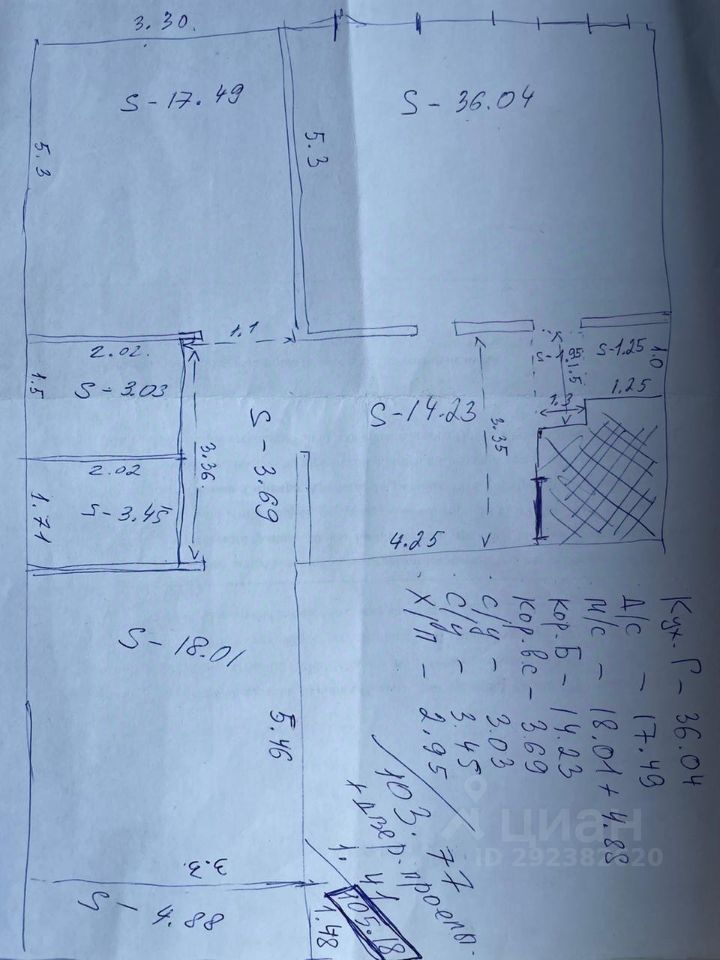 3.30.
S-17.49
S-36.04
5.3
5.3
1.1
2.02.
1.5
S-3.03
S-1.25
1.0
1.5
1.25
1.3
S-14.23
3.35
3.36
S-3.69
2.02
S-3.45
1.71
4.25
S-18.01
5.46
3.3
S-4.88
1.48
Кух. Г - 36.04
Д/С - 17.49
М/С - 18.01 + 4.88
Кор. Б - 14.23
Кор. вс - 3.69
С/у - 3.03
С/у - 3.45
Х/П - 2.95
103.77
+ двер. проемы.
1.41
105.18
циан